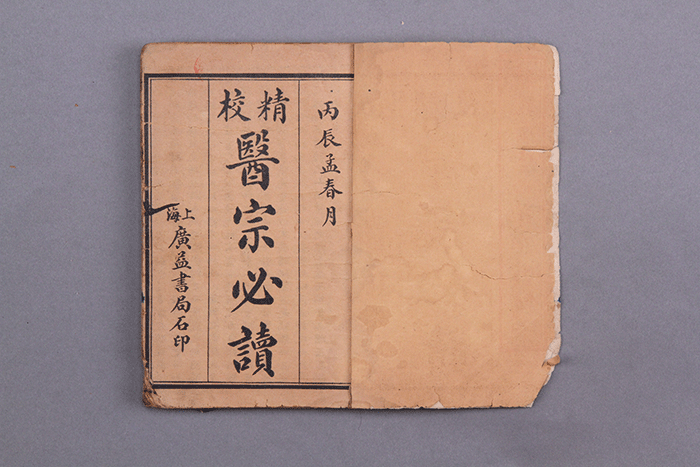 丙辰孟春月
精校
醫宗必讀
上海
廣益書局石印